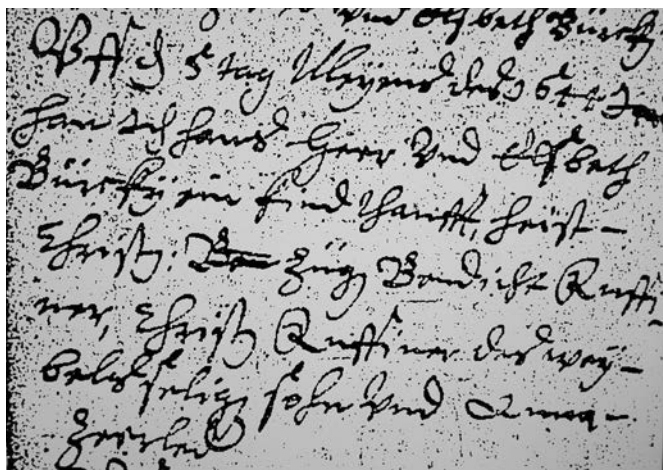 und Elsbeth Bürky
Uff dē 5 tag Meyens des 1641 J
han ich hans Heer und Elsbeth
Bürky ein kind thaufft, heist
Christ: Züg Bendicht Ruffi
ner, Christ Ruffiner des wey-
bels seligē sohn und Anna
Zeerleder